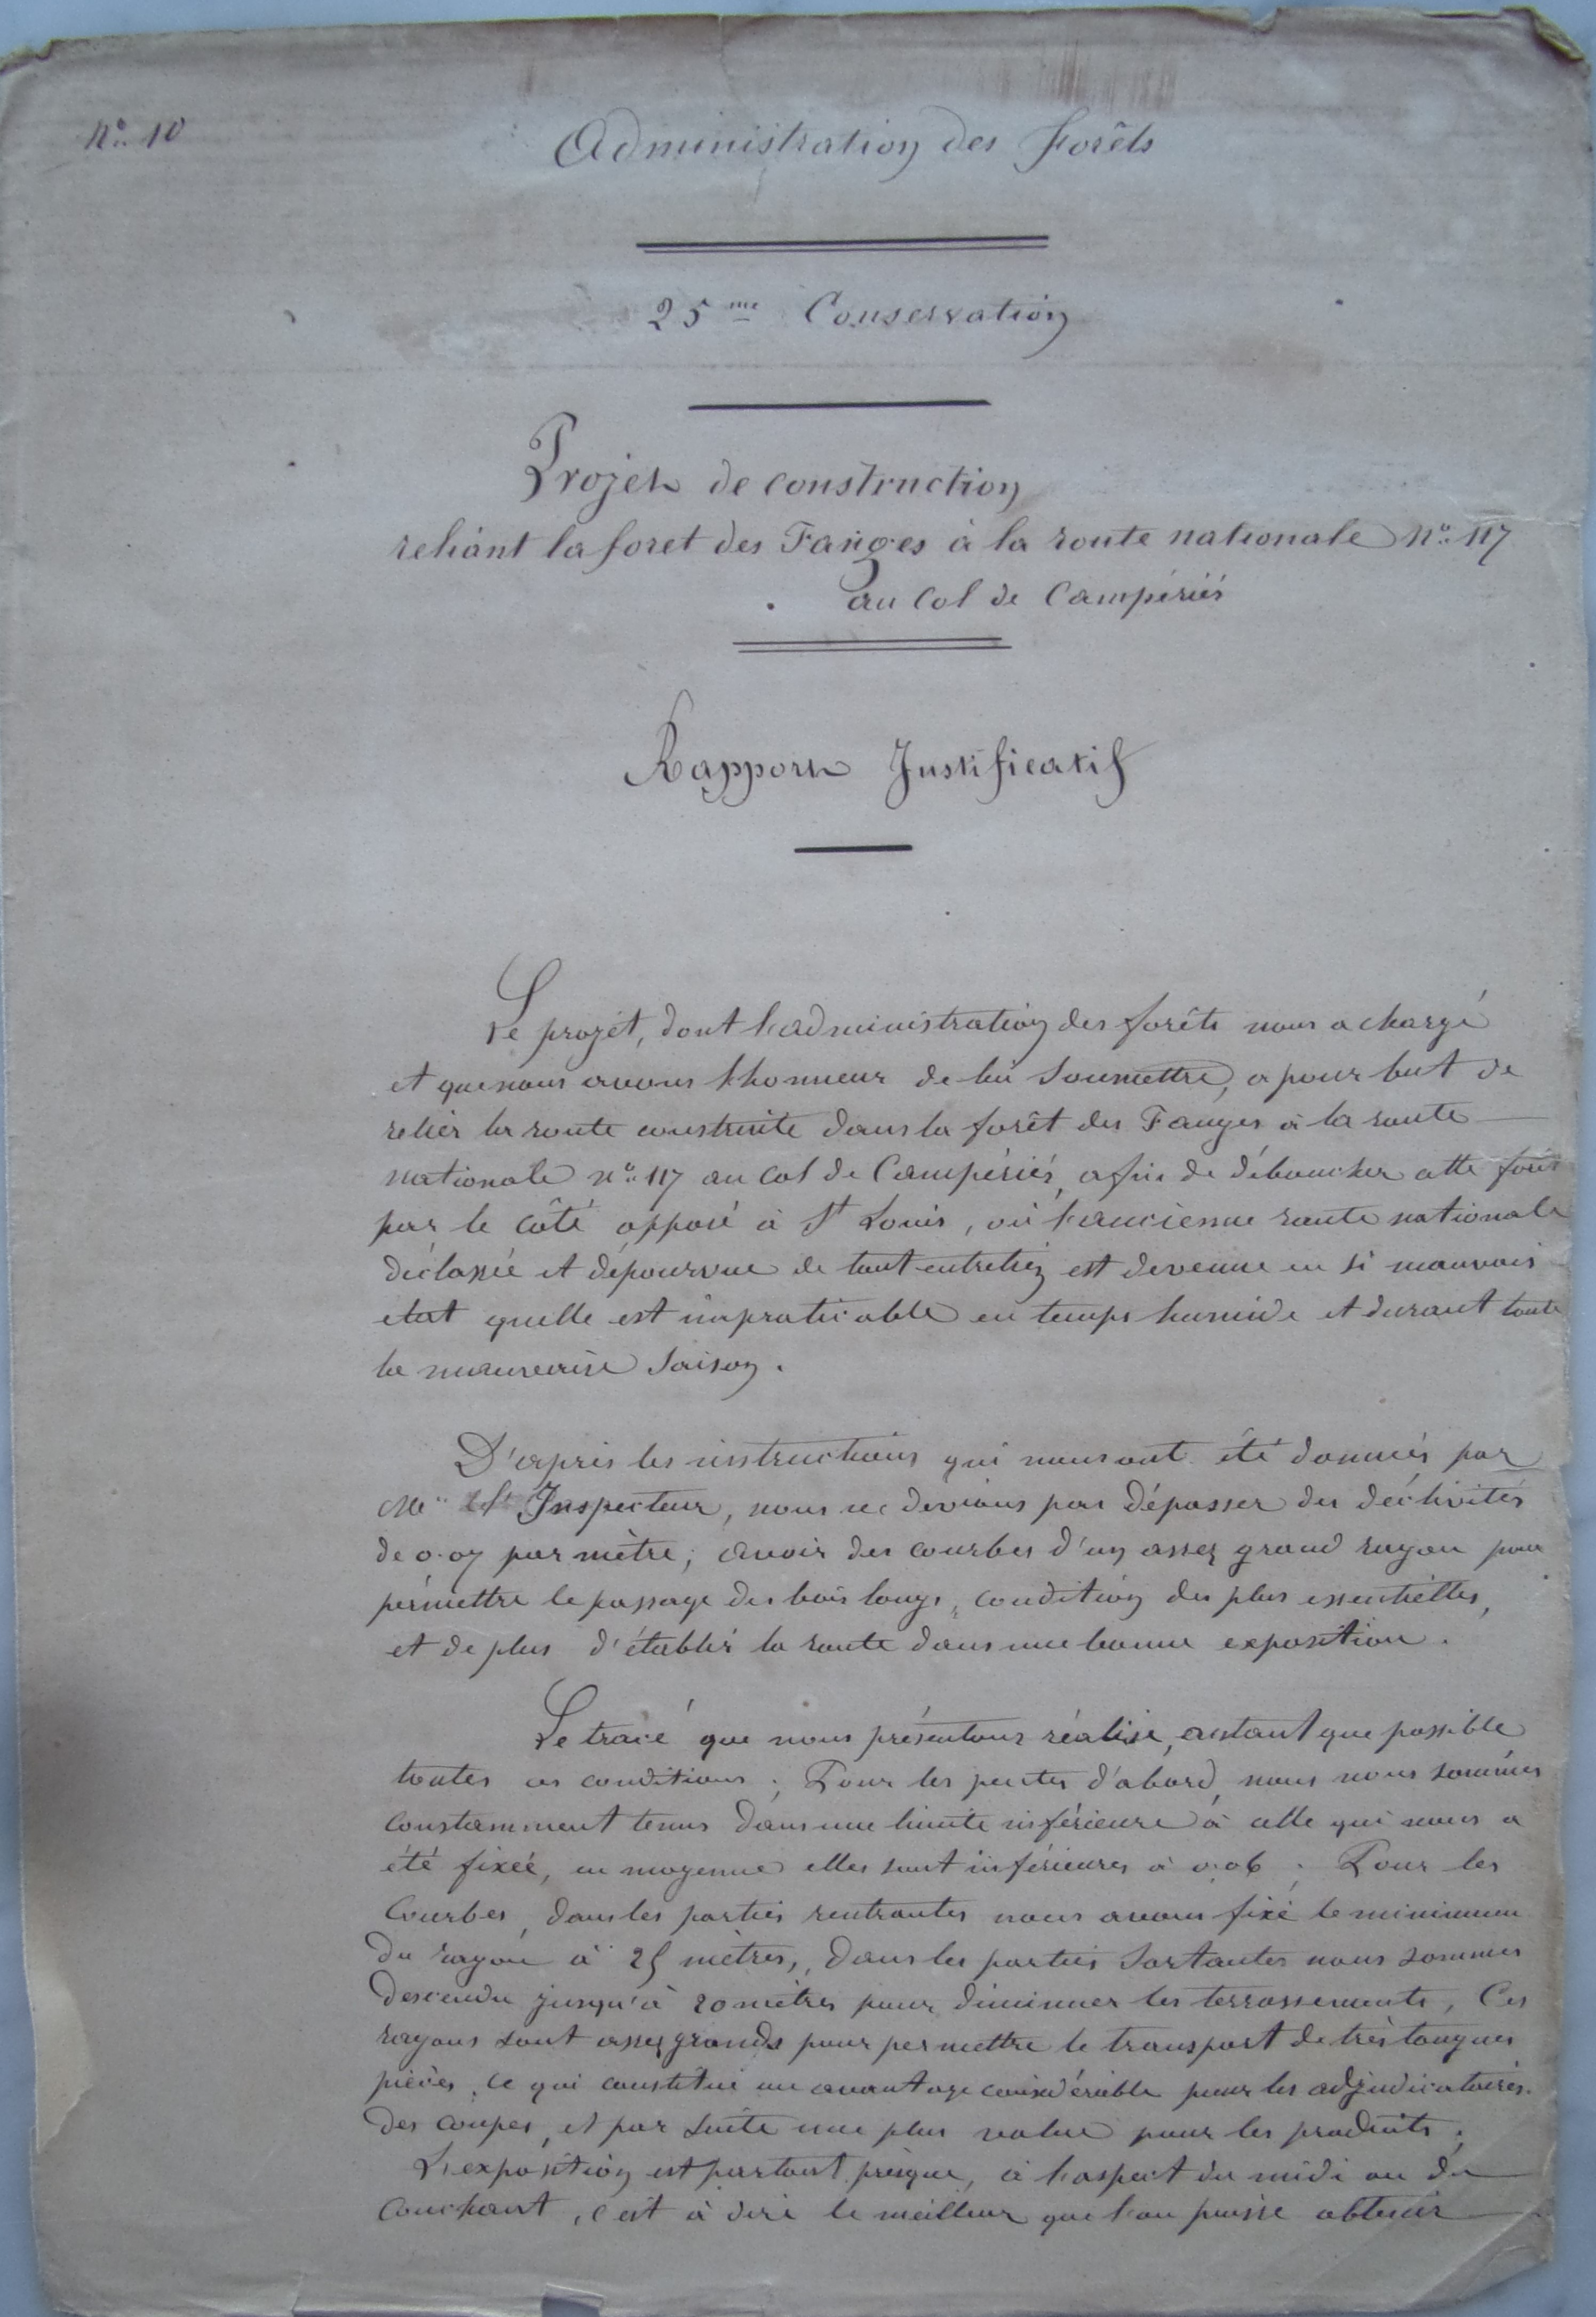 N° 10
Administration des Forêts
25me Conservation
Projet de construction
reliant la foret des Fanges à la route nationale N° 117
au Col de Campériés
Rapport Justificatif
Le projet, dont l'administration des forêts nous a chargé
et que nous avons l'honneur de lui soumettre, a pour but de
relier la route construite dans la forêt des Fanges à la route
nationale n° 117 au Col de Campériés, afin de déboucher cette forêt
par le côté opposé à St Louis, où l'ancienne route nationale
déclassée et dépourvue de tout entretien est devenue en si mauvais
etat quelle est impraticable en temps humide et durant toute
la mauvaise saison.
D'après les instructions qui nous ont été données par
Mr Inspecteur, nous ne devions pas dépasser des déclivités
de 0.07 par mètre; avoir des courbes d'un assez grand rayon pour
permettre le passage des bois longs, condition des plus essentielles,
et de plus d'établir la route dans une bonne exposition.
Le tracé que nous présentons réalise, autant que possible
toutes ces conditions; Pour les pentes d'abord, nous nous sommes
constamment tenus dans une limite inférieure à celle qui nous a
été fixée, en moyenne elles sont inférieures à 0.06. Pour les
Courbes, dans les parties rentrantes nous avons fixé le minimum
du rayon à 25 mètres, dans les parties sortantes nous sommes
descendu jusqu'à 20 mètres pour diminuer les terrassements, Ces
rayons sont assez grands pour permettre le transport de très longues
pièces, ce qui constitue un avantage considérable pour les adjudicataires
des coupes, et par suite une plus value pour les produits.
L'exposition est partout presque, à l'aspect du midi ou du
Couchant, c'est à dire le meilleur que l'on puisse obtenir